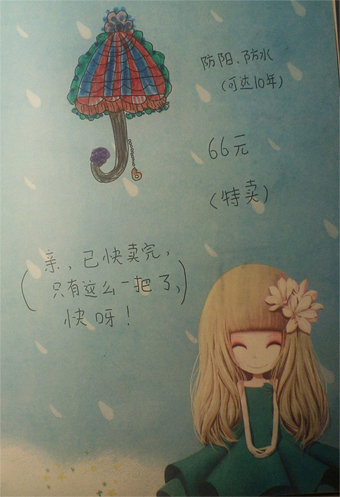 防阳、防水
(可达10年)
66元
(特卖)
(亲，已快卖完，
只有这么一把了，)
快呀！